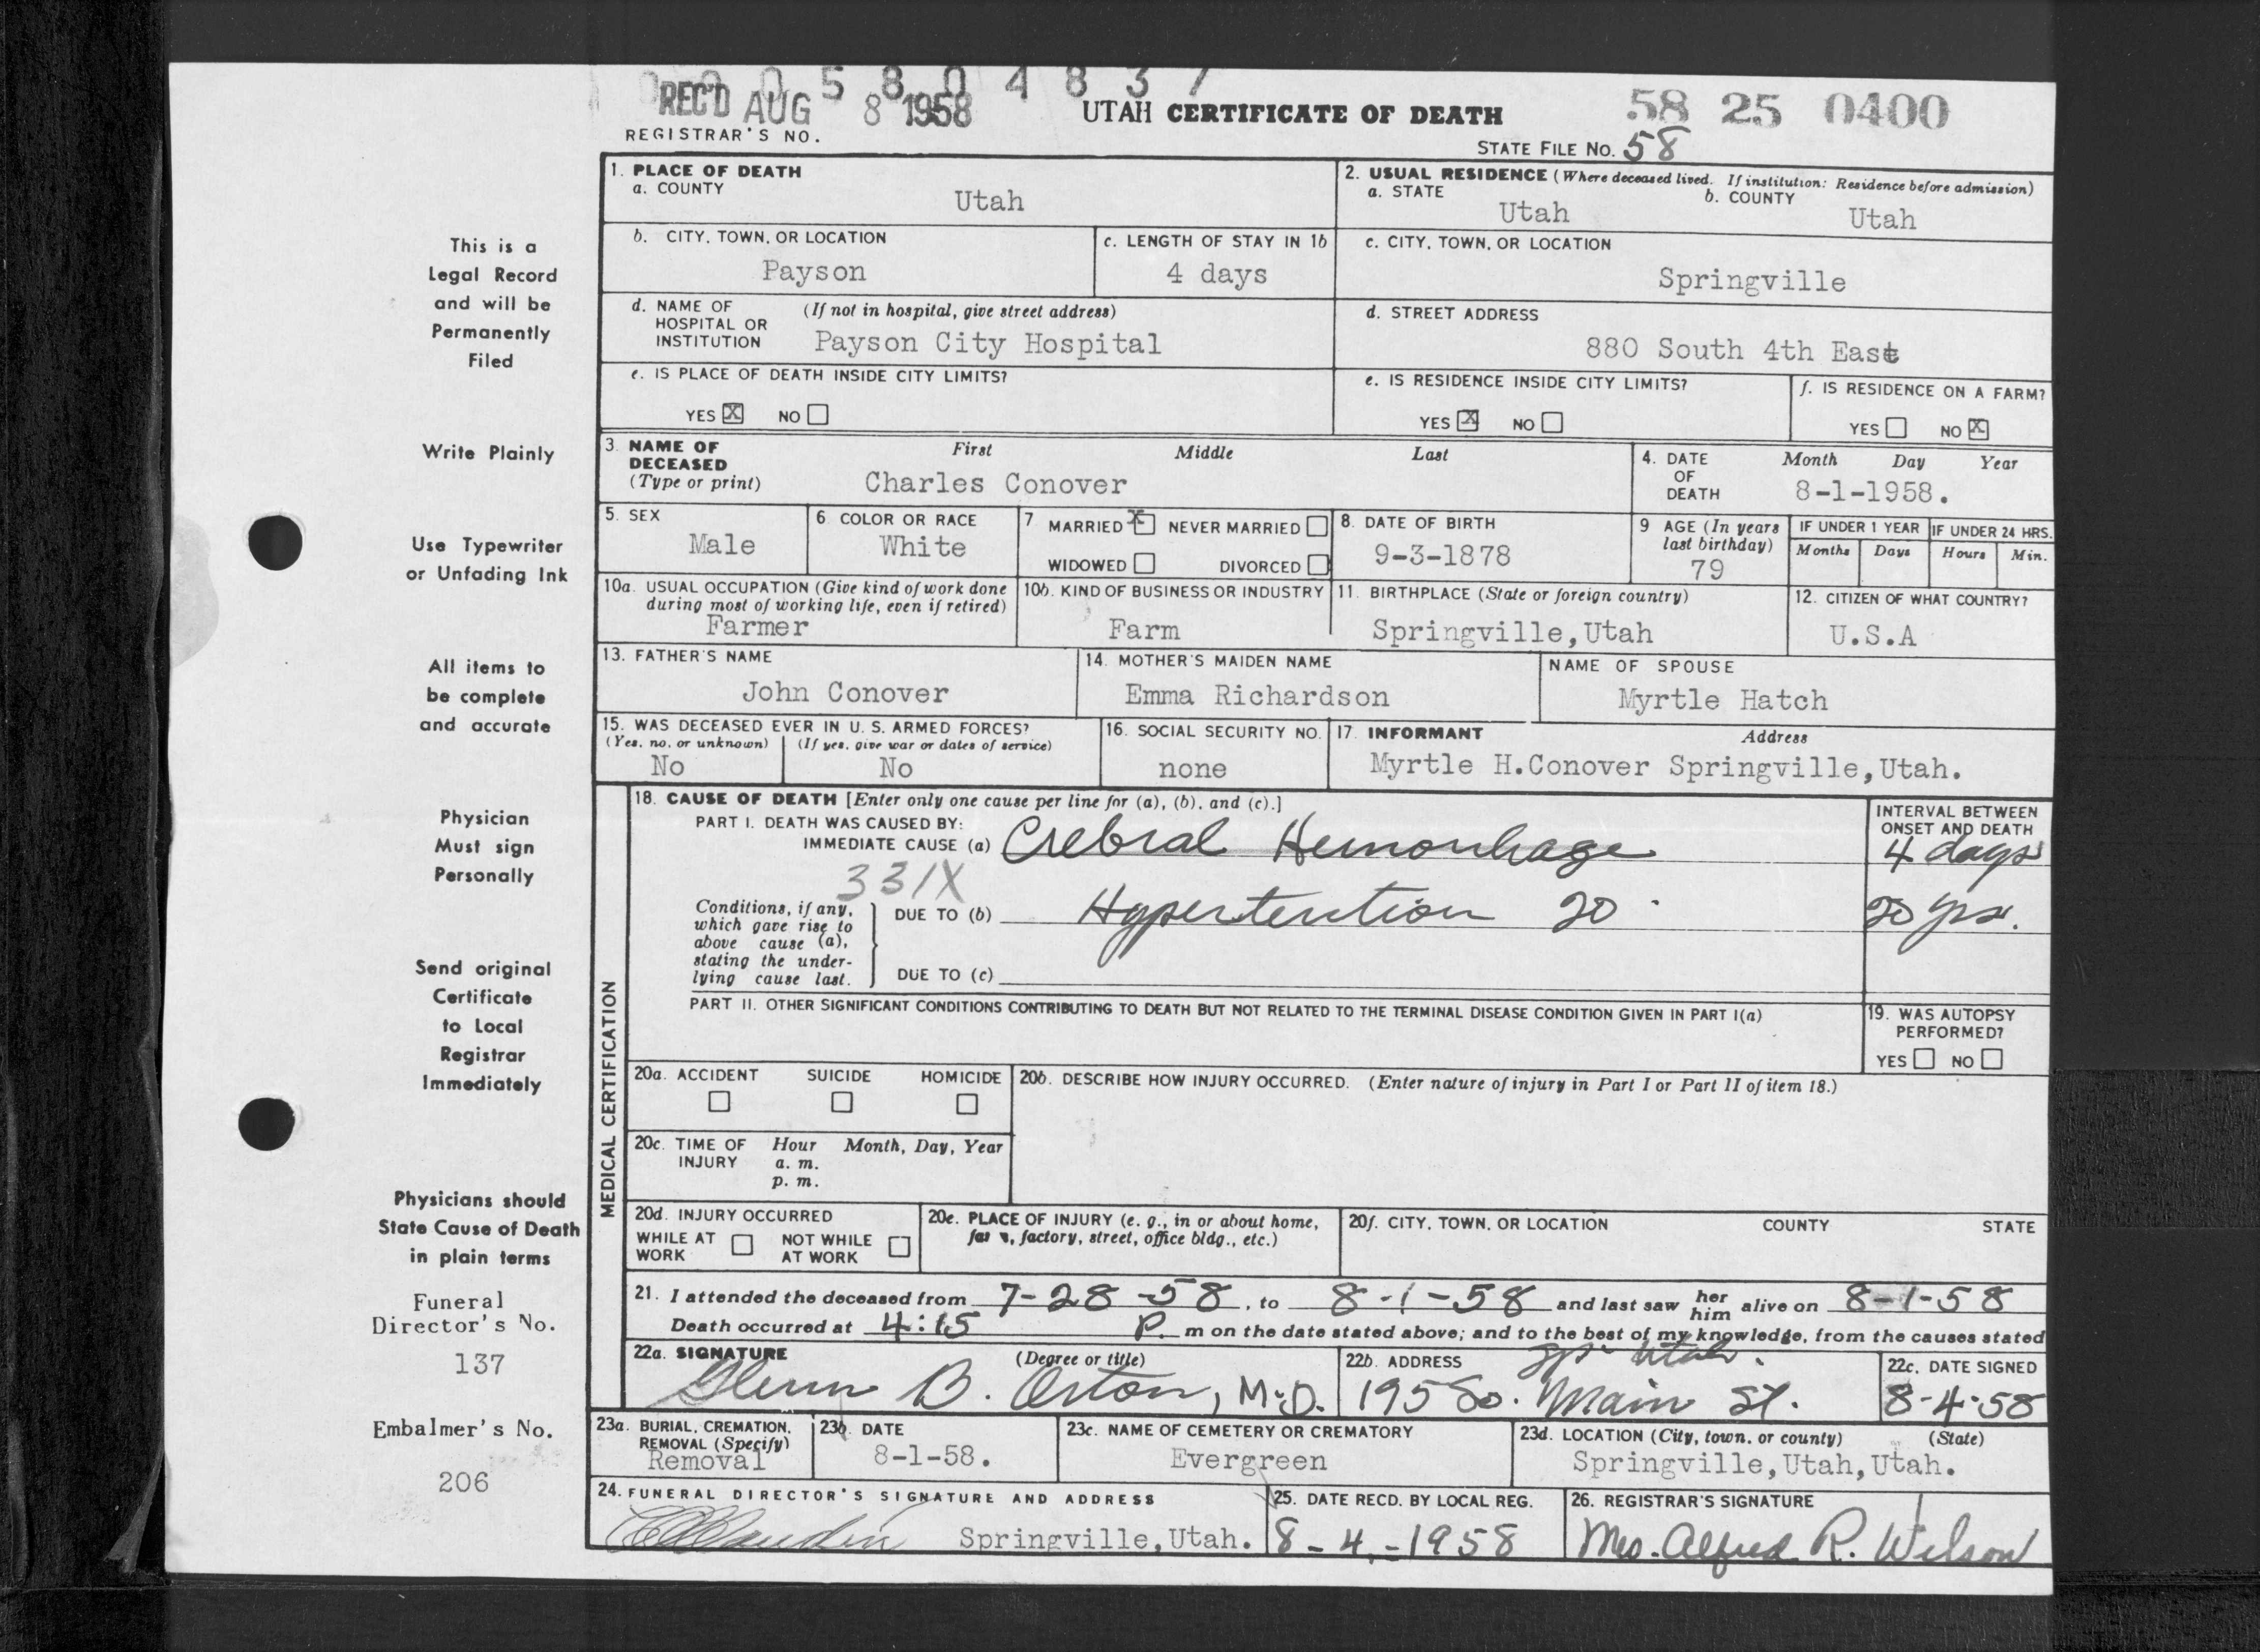 0 0 0 5 8 0 4 8 3 7
REC'D AUG 8 1958
UTAH CERTIFICATE OF DEATH
58 25 0400
REGISTRAR'S NO.
STATE FILE NO. 58
This is a
Legal Record
and will be
Permanently
Filed
Write Plainly
Use Typewriter
or Unfading Ink
All items to
be complete
and accurate
Physician
Must sign
Personally
Send original
Certificate
to Local
Registrar
Immediately
Physicians should
State Cause of Death
in plain terms
Funeral
Director's No.
137
Embalmer's No.
206
1. PLACE OF DEATH
a. COUNTY
Utah
2. USUAL RESIDENCE (Where deceased lived. If institution: Residence before admission)
a. STATE b. COUNTY
Utah Utah
b. CITY, TOWN, OR LOCATION
Payson
c. LENGTH OF STAY IN 1b
4 days
c. CITY, TOWN, OR LOCATION
Springville
d. NAME OF (If not in hospital, give street address)
HOSPITAL OR
INSTITUTION Payson City Hospital
d. STREET ADDRESS
880 South 4th East
e. IS PLACE OF DEATH INSIDE CITY LIMITS?
YES X NO
e. IS RESIDENCE INSIDE CITY LIMITS?
YES X NO
f. IS RESIDENCE ON A FARM?
YES NO X
3. NAME OF DECEASED
(Type or print)
First Middle Last
Charles Conover
4. DATE OF DEATH
Month Day Year
8-1-1958.
5. SEX
Male
6 COLOR OR RACE
White
7 MARRIED X NEVER MARRIED
WIDOWED DIVORCED
8. DATE OF BIRTH
9-3-1878
9 AGE (In years
last birthday)
79
IF UNDER 1 YEAR IF UNDER 24 HRS.
Months Days Hours Min.
10a. USUAL OCCUPATION (Give kind of work done
during most of working life, even if retired)
Farmer
10b. KIND OF BUSINESS OR INDUSTRY
Farm
11. BIRTHPLACE (State or foreign country)
Springville,Utah
12. CITIZEN OF WHAT COUNTRY?
U.S.A
13. FATHER'S NAME
John Conover
14. MOTHER'S MAIDEN NAME
Emma Richardson
NAME OF SPOUSE
Myrtle Hatch
15. WAS DECEASED EVER IN U. S. ARMED FORCES?
(Yes, no, or unknown) (If yes, give war or dates of service)
No No
16. SOCIAL SECURITY NO.
none
17. INFORMANT Address
Myrtle H.Conover Springville,Utah.
MEDICAL CERTIFICATION
18. CAUSE OF DEATH [Enter only one cause per line for (a), (b), and (c).]
PART I. DEATH WAS CAUSED BY:
IMMEDIATE CAUSE (a) Crebral Hemorrhage
INTERVAL BETWEEN
ONSET AND DEATH
4 days
331X
Conditions, if any,
which gave rise to
above cause (a),
stating the under-
lying cause last.
DUE TO (b) Hypertention 20
20 yrs.
DUE TO (c)
PART II. OTHER SIGNIFICANT CONDITIONS CONTRIBUTING TO DEATH BUT NOT RELATED TO THE TERMINAL DISEASE CONDITION GIVEN IN PART I(a)
19. WAS AUTOPSY
PERFORMED?
YES NO
20a. ACCIDENT SUICIDE HOMICIDE
20b. DESCRIBE HOW INJURY OCCURRED. (Enter nature of injury in Part I or Part II of item 18.)
20c. TIME OF INJURY
Hour Month, Day, Year
a. m.
p. m.
20d. INJURY OCCURRED
WHILE AT WORK NOT WHILE AT WORK
20e. PLACE OF INJURY (e. g., in or about home,
factory, street, office bldg., etc.)
20f. CITY, TOWN, OR LOCATION COUNTY STATE
21. I attended the deceased from 7-28-58, to 8-1-58 and last saw her him alive on 8-1-58
Death occurred at 4:15 P. m on the date stated above; and to the best of my knowledge, from the causes stated
22a. SIGNATURE (Degree or title)
Glenn B. Orton, M.D.
22b. ADDRESS
Utah.
195 So. Main St.
22c. DATE SIGNED
8-4-58
23a. BURIAL, CREMATION,
REMOVAL (Specify)
Removal
23b. DATE
8-1-58.
23c. NAME OF CEMETERY OR CREMATORY
Evergreen
23d. LOCATION (City, town, or county) (State)
Springville,Utah,Utah.
24. FUNERAL DIRECTOR'S SIGNATURE AND ADDRESS
Springville,Utah.
25. DATE RECD. BY LOCAL REG.
8-4-1958
26. REGISTRAR'S SIGNATURE
Mrs. Alfred R. Wilson